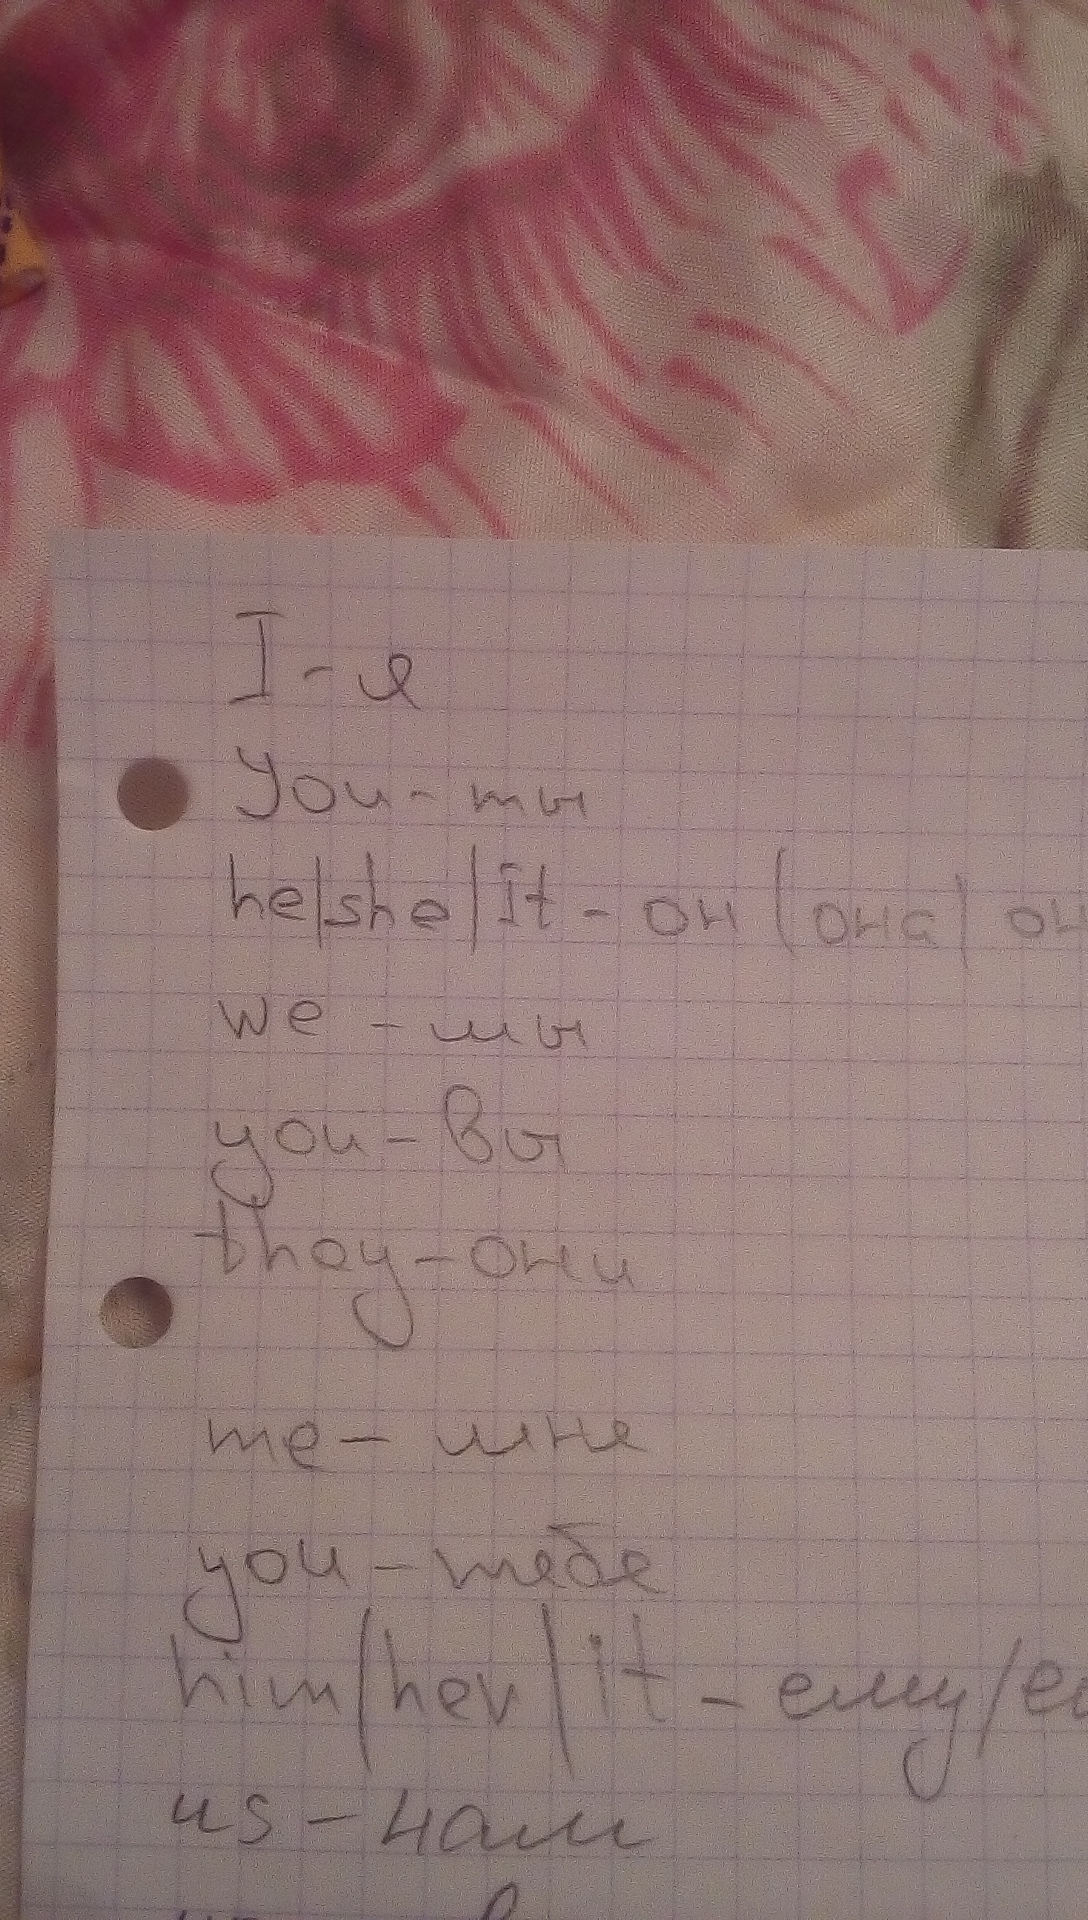 I - я
You - ты
he/she/it - он (она)
we - мы
you - вы
they - они
me - мне
you - тебе
him/her/it - ему/
us - нам